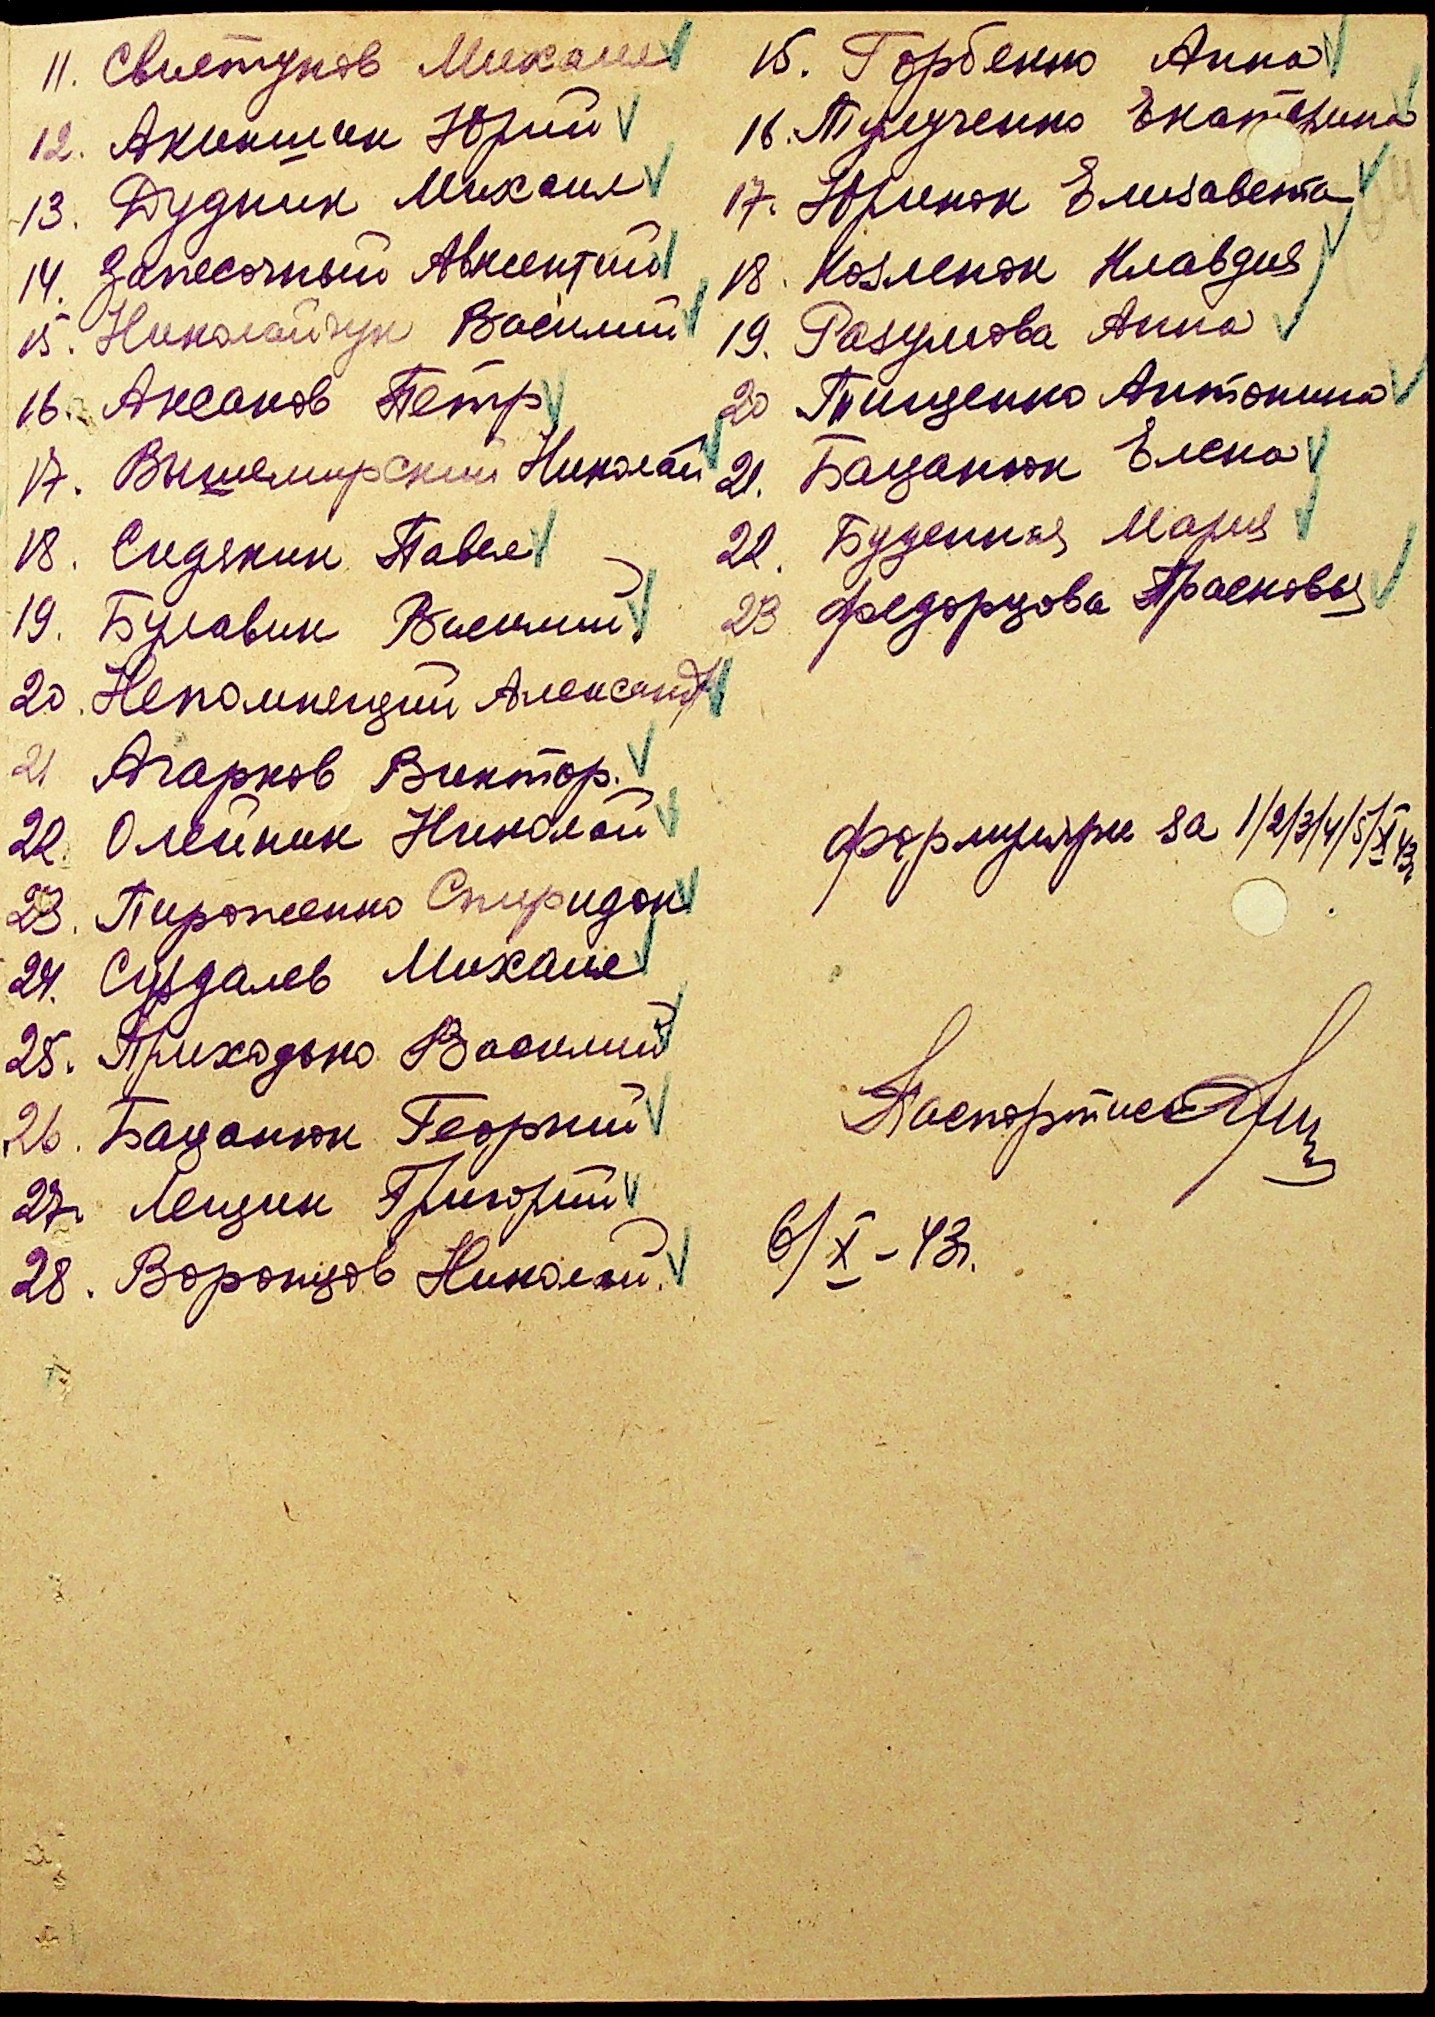 11. Свистунов Михаил
12. Акиншин Юрий
13. Дудник Михаил
14. Запесочный Авксентий
15. Николайчук Василий
16. Аксанов Петр
17. Вышемирский Николай
18. Сидякин Павел
19. Булавин Василий
20. Непомнещий Александр
21 Агарков Виктор.
22. Олейник Николай
23. Пироженко Спиридон
24. Суздалев Михаил
25. Приходько Василий
26. Бацанюк Георгий
27. Лещик Григорий
28. Воронцов Николай.
15. Горбенко Анна
16. Екатерина
17. Юринюк Елизавета
18. Козленюк Клавдия
19. Разумова Анна
20 Тищенко Антонина
21. Бацанюк Елена
22. Буденная Мария
23 Федорцова Прасковья
формуляри за 1/2/3/4/5/XI 43г.
Паспортист
6/X-43г.